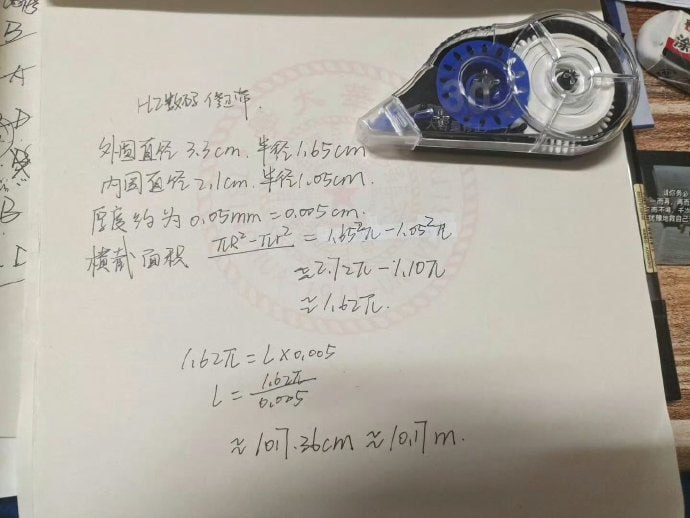 HZ数码修正带.
外圆直径 3.3cm. 半径1.65cm
内圆直径2.1cm. 半径1.05cm.
厚度约为 0.05mm = 0.005cm.
横截面积 πR²-πr² = 1.65²π-1.05²π
≈2.72π-1.10π
≈1.62π.
1.62π = L×0.005
L = 1.62π/0.005
≈1017.36cm ≈10.17m.
B
A
D
B